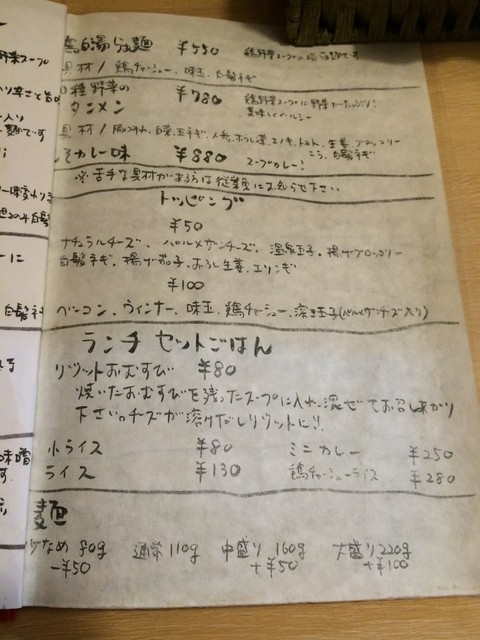 鶏白湯らぁ麺 ¥550 鶏野菜スープに塩らぁ麺です
具材/鶏チャーシュー、味玉、白髪ネギ
種野菜の
タンメン ¥780 鶏野菜スープに野菜がたっぷり!
美味しくヘルシー
具材/白菜、玉ネギ、人参、ほうれん草、エノキ、トマト、生姜、ブロッコリー
白髪ネギ
カレー味 ¥880 スープカレー!
※苦手な具材がある方は従業員にお知らせ下さい
トッピング
¥50
ナチュラルチーズ、パルメザンチーズ、温泉玉子、揚げブロッコリー
白髪ネギ、揚げ茄子、おろし生姜、エリンギ
¥100
ベーコン、ウィンナー、味玉、鶏チャーシュー、玉子(パルメザンチーズ入り)
ランチセットごはん
リゾットおむすび ¥80
焼いたおむすびを残ったスープに入れ、混ぜてお召し上がり
下さい。チーズが溶けだしリゾットに!!
小ライス ¥80 ミニカレー ¥250
ライス ¥130 鶏チャーシューライス ¥280
麺
少なめ 80g 通常 110g 中盛り 160g 大盛り 220g
-¥50 +¥50 +¥100
味噌